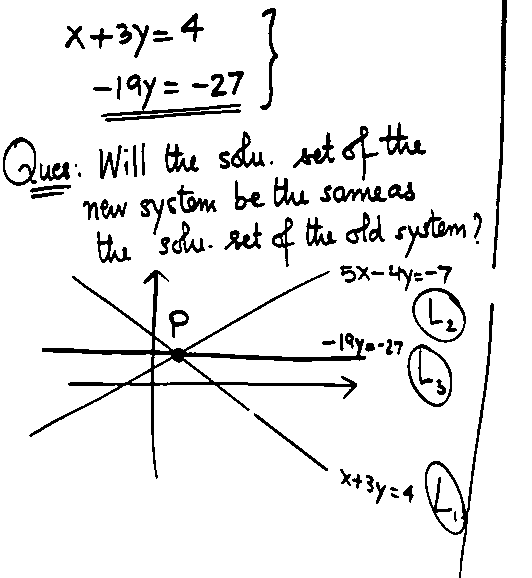 x+3y=4
-19y=-27
Ques: Will the solu. set of the
new system be the same as
the solu. set of the old system?
5x-4y=-7
L2
P
-19y=-27
L3
x+3y=4
L1